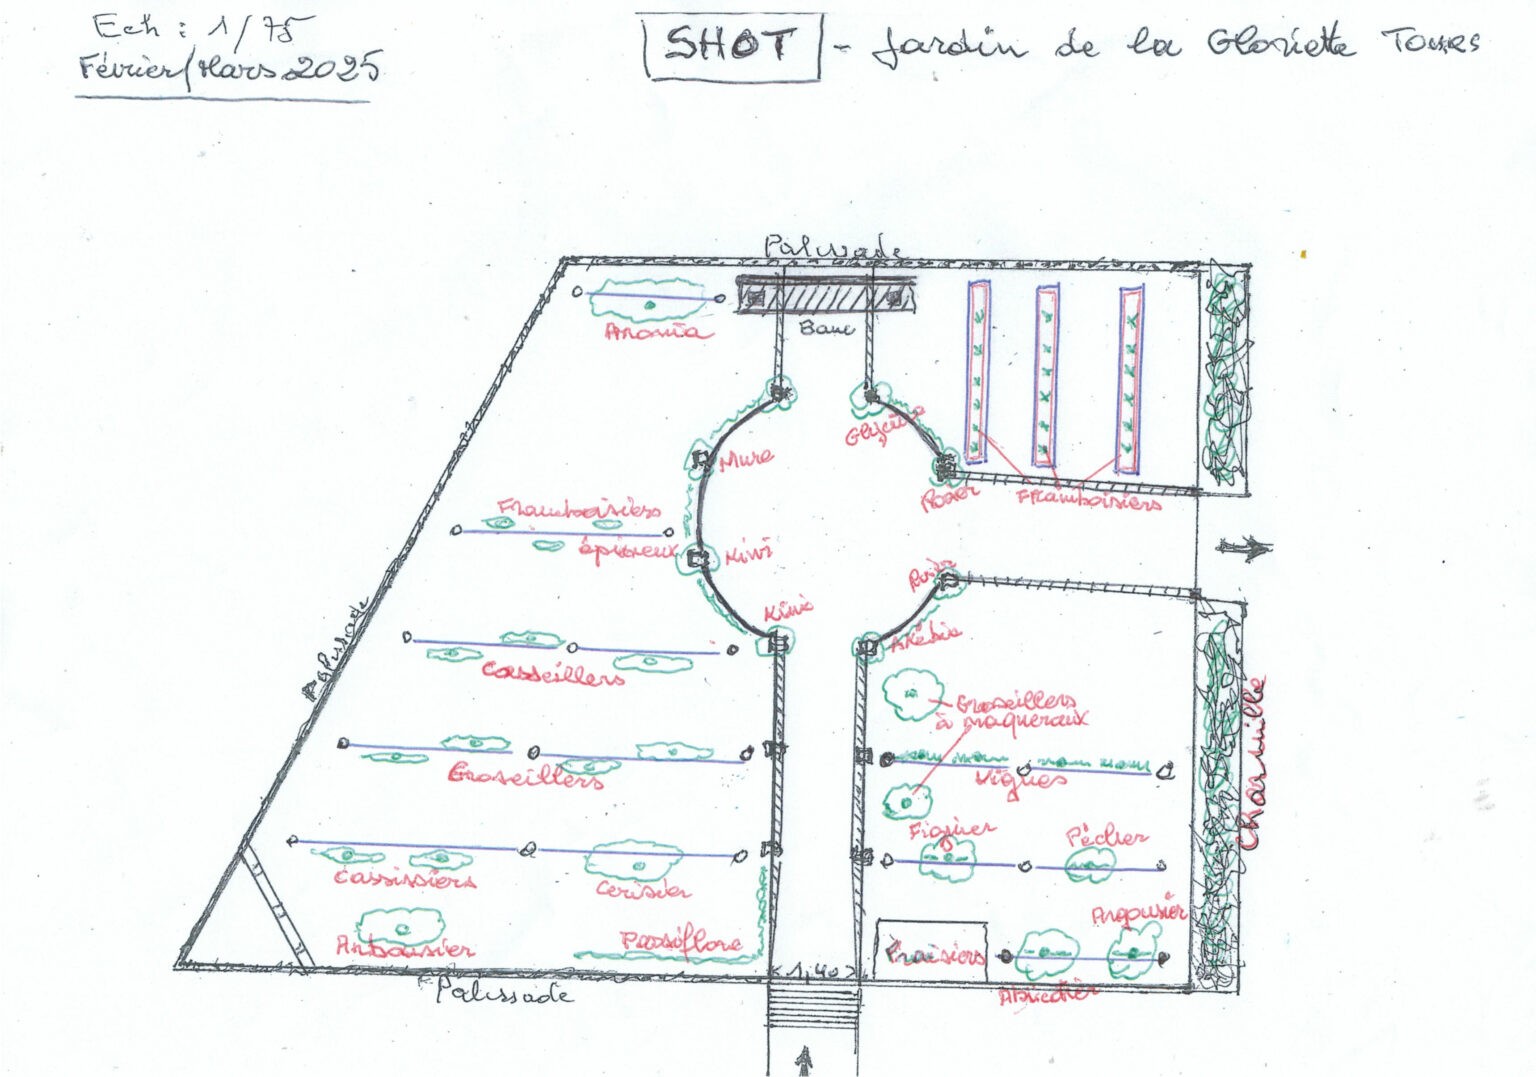 Ech : 1/75
Février/Mars 2025
SHOT - Jardin de la Gloriette Tours
Palissade
Aronia
Banc
Glycine
Mure
Rosier
Framboisiers
Framboisiers
épineux
Kiwi
Kiwi
Akébia
Palissade
Casseillers
Groseillers
à maqueraux
Charmille
Groseillers
Vignes
Figuier
Pêcher
Cassissiers
Cerisier
Argousier
Arbousier
Passiflore
Fraisiers
<1,40>
Abricotier
Palissade